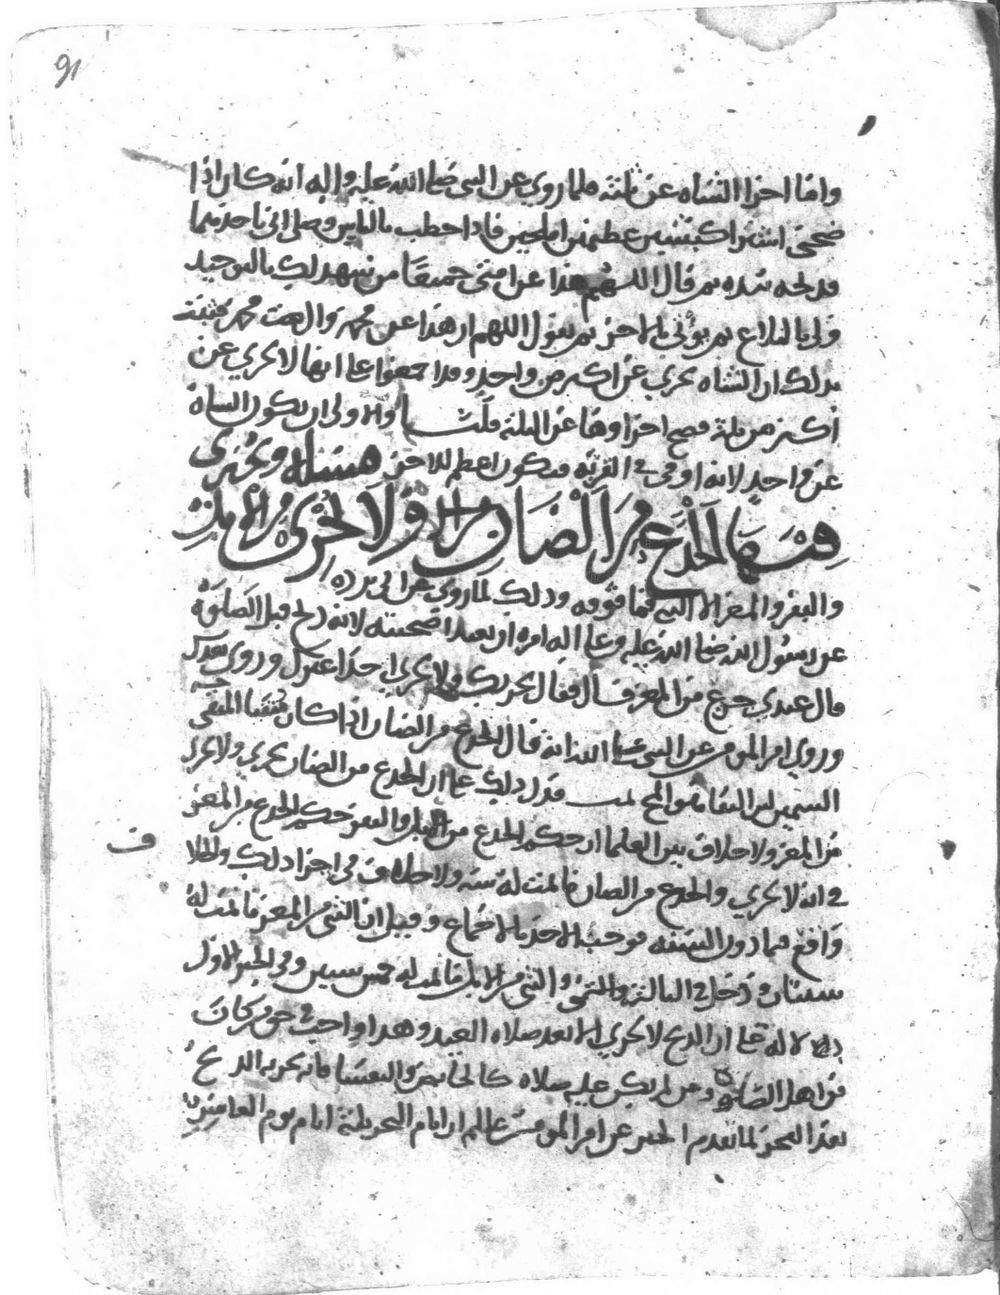 91
واما اجزا الشاه عن ثلثه فلما روي عن النبي صلى الله عليه واله انه كان اذا
ضحى اشترا كبشين عظيمين املحين فاذا خطب بالناس وصلى اتي باحدهما
فذبحه بيده ثم قال اللهم هذا عن امتي جميعا من شهد لك بالتوحيد
ولي بالبلاغ ثم يؤتى بالاخر ثم يقول اللهم ان هذا عن محمد وال محمد فثبت
بذلك ان الشاه تجزي عن اكثر من واحد وقد اجمعوا على انها لا تجزي عن
اكثر من ثلثه فصح اجزاوها عن الثلثه قلنا والاولى ان تكون الشاه
عن واحد لانه اوفى في القربه فيكون اعظم للاجر مسئله ويجزي
فيها الجذع من الضان ولا يجزي من الابل
والبقر والمعز الا الثني فما فوقه وذلك لما روي عن ابي برده
عن رسول الله صلى الله عليه وعلى اله امره ان يعيد اضحيته لانه ذبح قبل الصلوه
قال عندي جذع من المعز فقال يجزيك ولا يجزي احدا غيرك وروي بعدك
وروي امير المومنين عن النبي صلى الله انه قال الجذع من الضان اذا كان
السمين فدل ذلك على ان الجذع من الضان يجزي ولا يجزي
من المعز ولا خلاف بين العلما ان حكم الجذع من الابل والبقر حكم الجذع من المعز
في انه لا يجزي والجذع من الضان ما تمت له سنه ولا خلاف في اجزا ذلك والخلا
واقع فيما دون السنه فوجب الاخذ بالاجماع وقيل ان الثني من المعز ما تمت له
سنتان ودخل في الثالثه والثني من الابل ما تمت له خمس سنين وفي الخبر الاول
دلاله على ان الذبح لا يجزي الا بعد صلاه العيد وهذا واجب في حق من كان
من اهل الصلاه ومن لم يكن عليه صلاه كالحايض والنفسا فانه يجزيه الذبح
بعد الفجر لما تقدم الخبر عن امير المومنين عليلم ان ايام النحر ثلثة ايام يوم العاشر